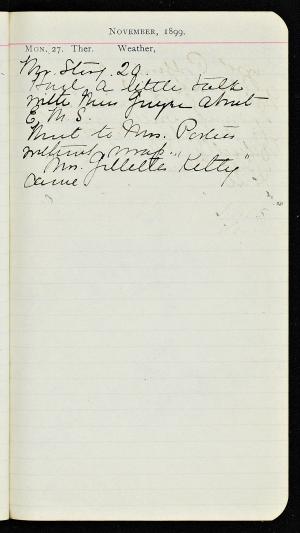 November, 1899.
Mon. 27. Ther. Weather,
Mr. Sting. 20
Had a little talk
with Miss about
E. M. S.
Went to Mrs. Porters
without wraps.
Mrs. Gillettes "Ketty"
came